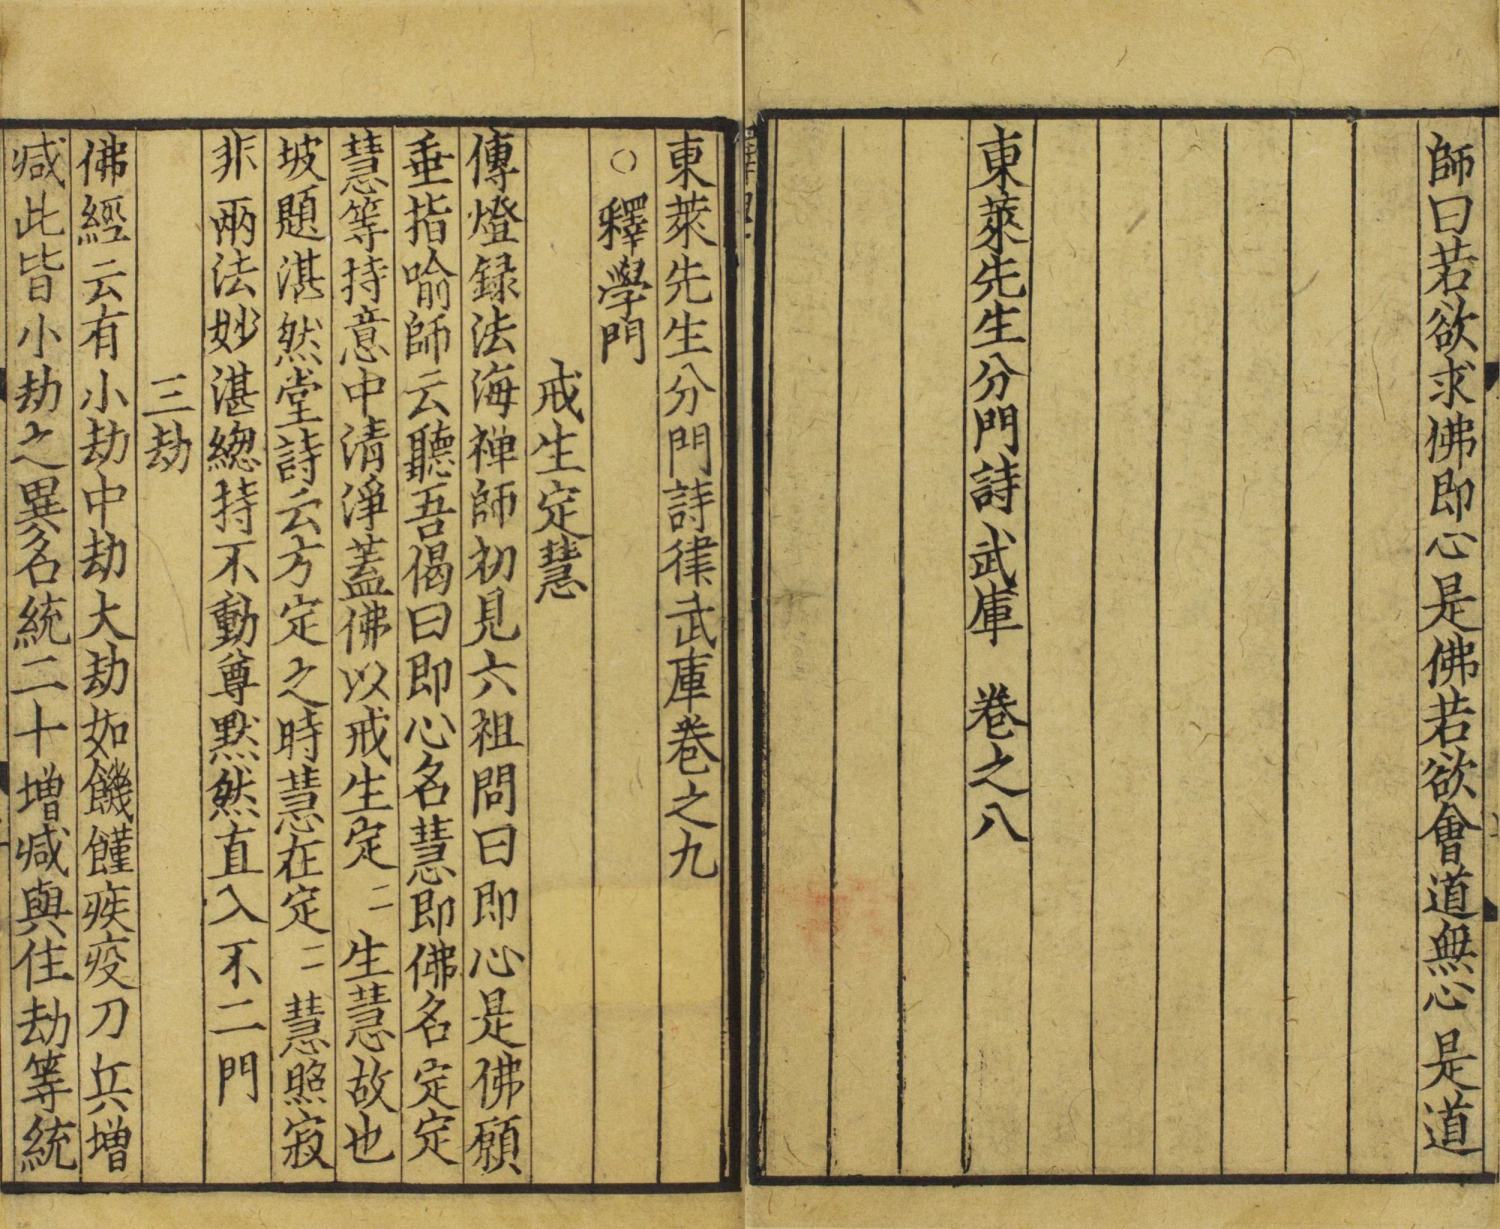 師曰若欲求佛即心是佛若欲會道無心是道
東萊先生分門詩武庫 卷之八
東萊先生分門詩律武庫卷之九
○釋學門
戒生定慧
傳燈録法海禅師初見六祖問曰即心是佛願
垂指喻師云聽吾偈曰即心名慧即佛名定定
慧等持意中清淨蓋佛以戒生定二生慧故也
坡題湛然堂詩云方定之時慧在定二慧照寂
非兩法妙湛緫持不動尊黙然直入不二門
三劫
佛經云有小劫中劫大劫如饑饉疾疫刀兵増
减此皆小劫之異名統二十増减與住劫等統